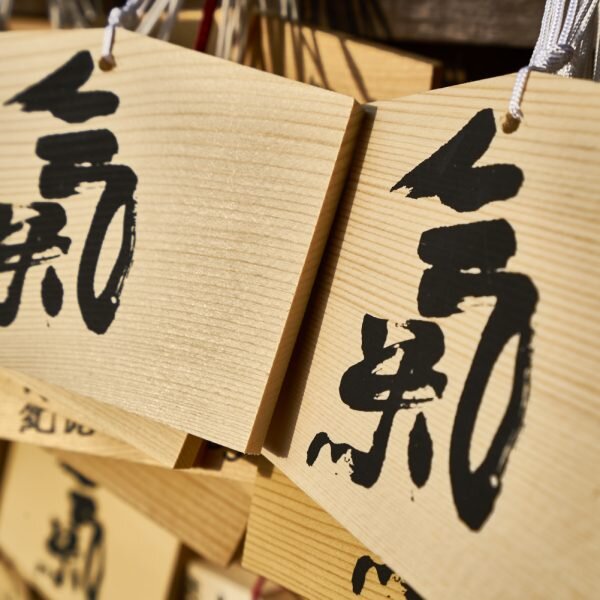 氣
氣
氣